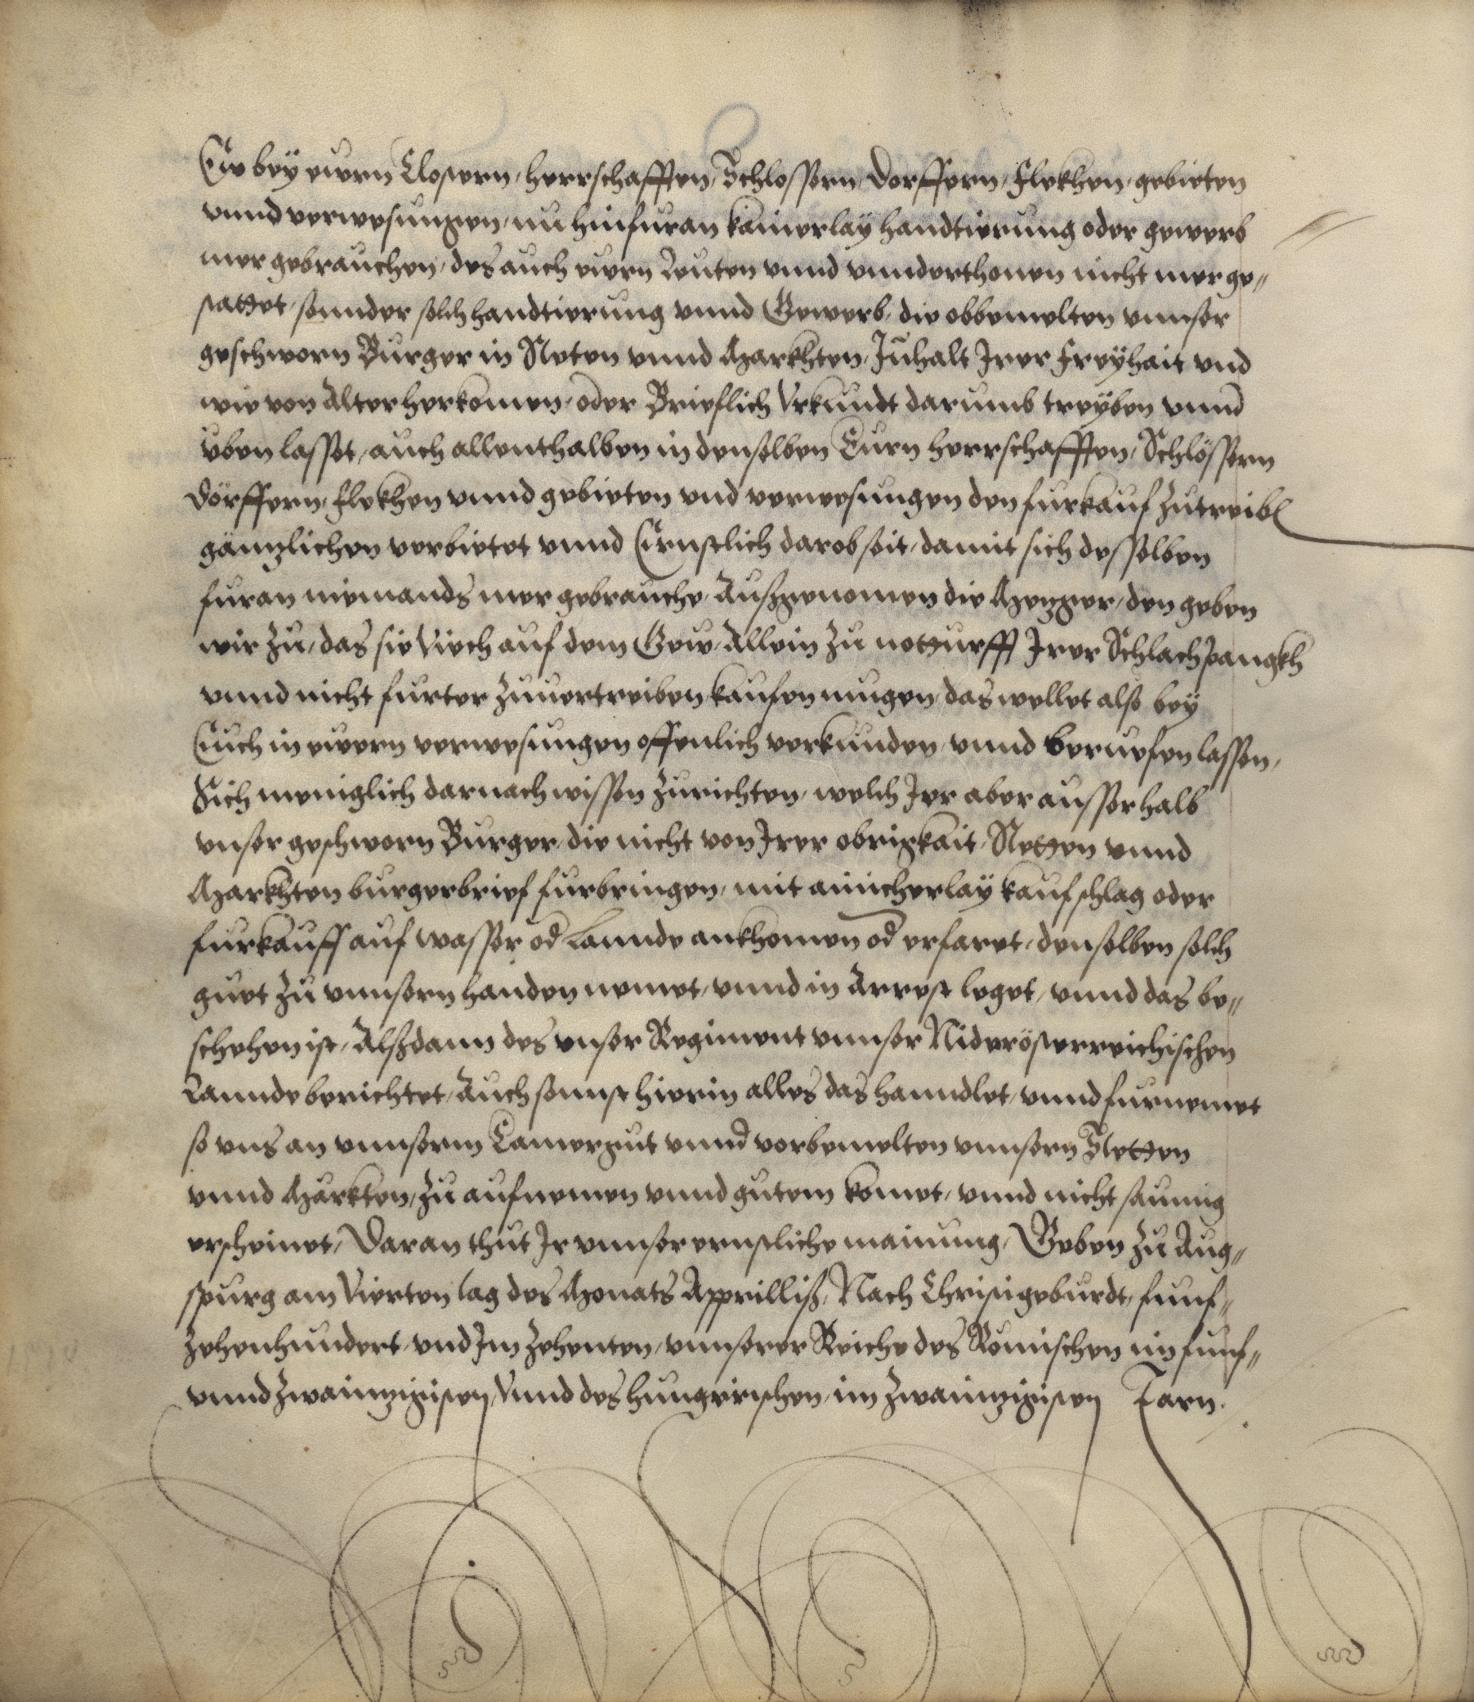 Ew bey ewrn Clostern, herrschafften, Schlossern, Dorffern, Flekhen, gebieten
vnnd verwesungen, nu hinfuran kainerlay handtierung oder gewerb
mer gebrauchen, des auch ewrn Leuten vnnd vnnderthonen nicht mer ge-
stattet, sonnder solch handtierung vnnd Gewerb, die obbemelten vnnser
geschworn Burger in Steten vnnd Markhten, Jnhalt Jrer Freyhait vnd
wie von Alter herkomen, oder Brieflich Vrkundt darumb treyben vnnd
vben lasset, auch allenthalben in denselben Eurn herrschafften, Schlössern
Dörffern, Flekhen vnnd gebieten vnd verwesungen den furkauf zutreibn
gännzlichen verbietet vnnd Ernstlich darob seit, damit sich desselben
furan niemands mer gebrauche, Außgenomen die Metzger, den geben
wir zu, das sie Viech auf dem Gew, Allein zu notturfft Jrer Schlachpangkh
vnnd nicht furter zuuertreiben kaufen mugen, das wellet also bey
Euch in ewern verwesungen offenlich verkunden, vnnd beruefen lassen,
Sich meniglich darnach wissen zurichten, welch Jr aber ausserhalb
vnser geschworn Burger, die nicht von Jrer obrigkait, Stetten vnnd
Markhten burgerbrief furbringen, mit ainicherlay kaufschlag oder
furkauff auf wasser od Lannde ankhomen od erfaret, denselben solch
guet zu vnnsern handen nemet, vnnd in Arrest leget, vnnd das be-
schehen ist, Alßdann des vnser Regiment vnnser Niderösterreichischen
Lannde berichtet, Auch sonnst hierin alles das hanndlet, vnnd furnemet
so vns an vnnserm Camergut vnnd vorbemelten vnnsern Stetten
vnnd Märkten, zu aufnemen vnnd gutem komet, vnnd nicht saumig
erscheinet, Daran thut Jr vnnser ernstliche mainung, Geben zu Aug-
spurg am Vierten tag des Monats Apprilliß, Nach Christi geburdt, funf-
zehenhundert, vnd Jm zehenten, vnnserer Reiche des Römischen im funf-
vnnd zwainzigisten, Vnnd des hungrischen, im zwainzigisten Jarn.